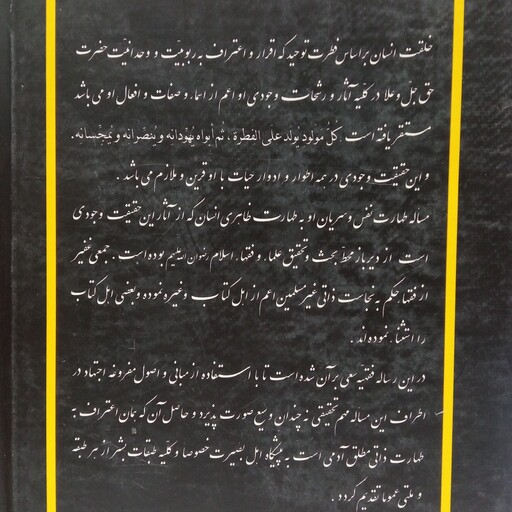 خلقت انسان براساس فطرت توحید که اقرار و اعتراف به ربوبیّت و وحدانیّت حضرت
حق جلّ و علا در کلیّه آثار و رشحات وجودی او اعم از اسماء و صفات و افعال او می باشد
مستقر یافته است، کُلُّ مولود یولد علی الفطرة، ثُم أبواه یُهوّدانه و ینصرانه و یُمجّسانه.
و این حقیقت وجودی در همه اطوار و ادوار حیات با او قرین و ملازم می باشد.
مساله طهارت نفس و سریان او به طهارت ظاهری انسان که از آثار این حقیقت وجودی
است از دیرباز محطّ بحث و تحقیق علماء و فقهاء اسلام رضوان الله علیهم بوده است. جمعی غفیر
از فقهاء حکم به نجاست ذاتی غیر مسلمین اعم از اهل کتاب و غیره نموده و بعضی اهل کتاب
را استثناء نموده اند.
در این رساله فقهیه سعی بر آن شده است تا با استفاده از مبانی و اصول مفروغه اجتهاد در
اطراف این مساله مهم تحقیقی نه چندان وسیع صورت پذیرد و حاصل آن که همان اعتراف به
طهارت ذاتی مطلق آدمی است به پیشگاه اهل بصیرت خصوصا و کلیّه طبقات بشر از هر طبقه
و ملّتی عموما تقدیم گردد.